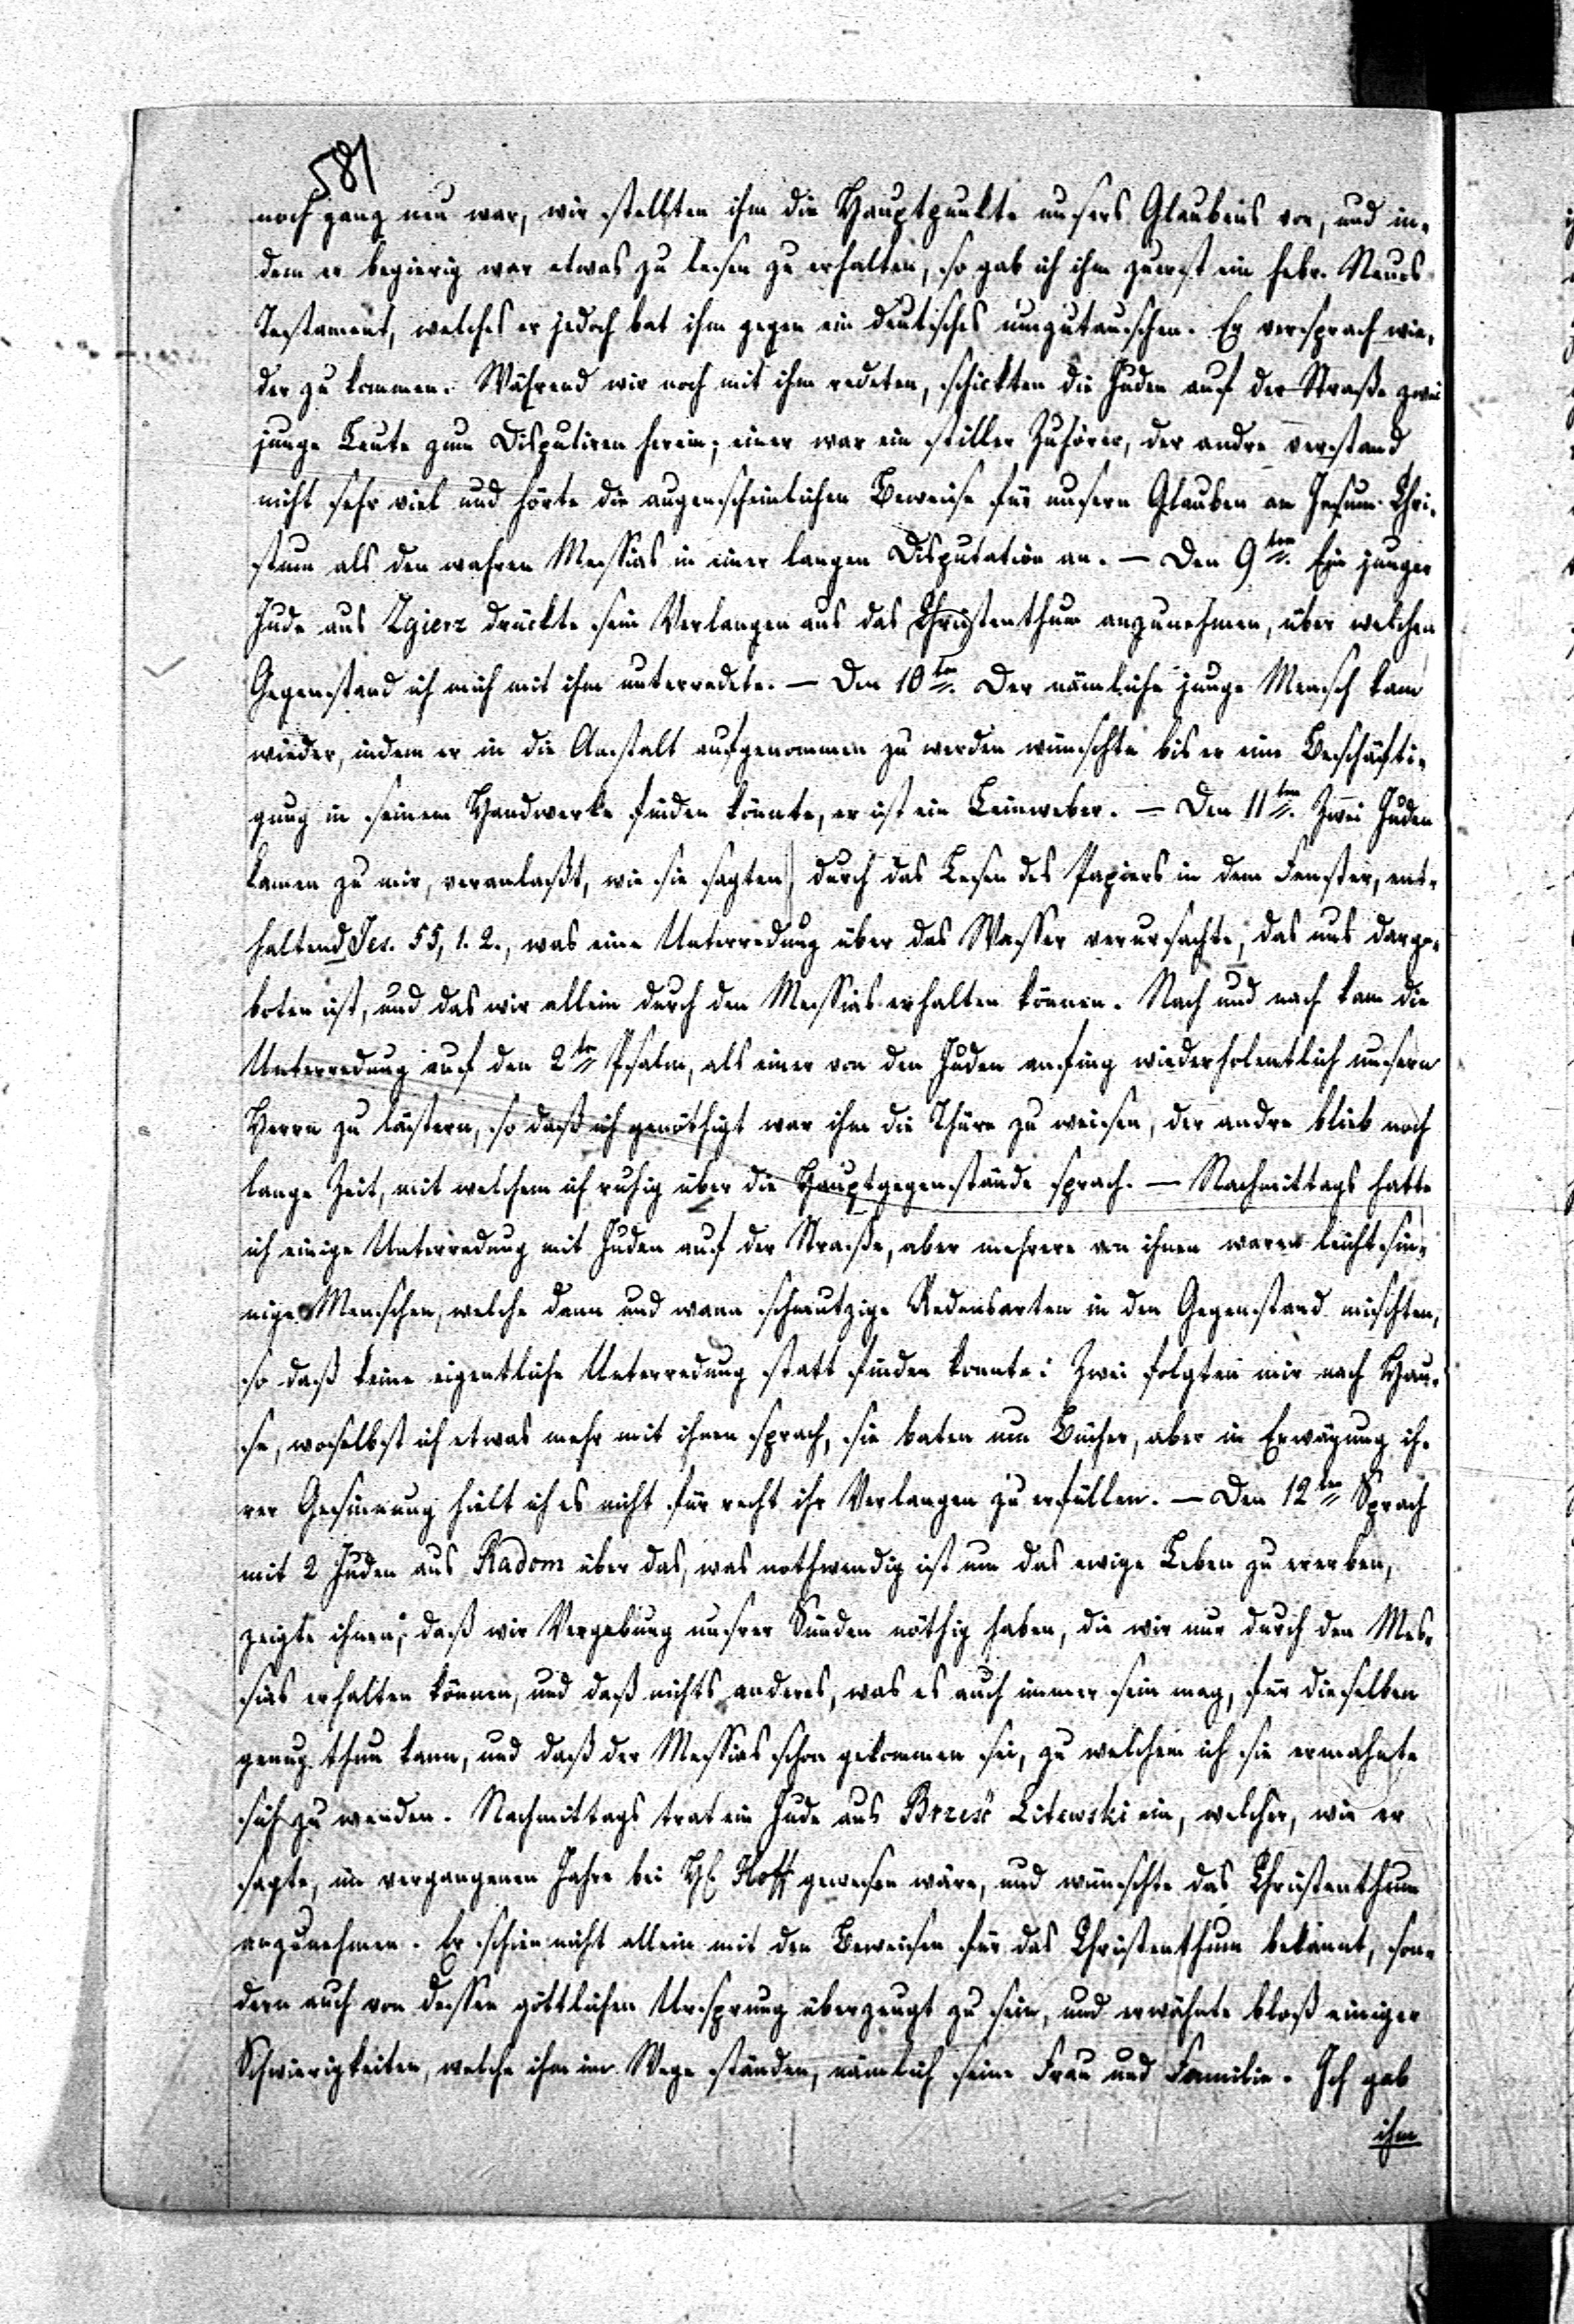 581
noch ganz neu war, wir stellten ihm die Hauptpunkte unsers Glaubens vor, und in-
dem er begierig war etwas zu lesen zu erhalten, so gab ich ihm zuerst ein hebr. Neues
Testament, welches er jedoch bat ihm gegen ein deutsches umzutauschen. Er versprach wie-
der zu kommen. Während wir noch mit ihm redeten, schickten die Juden auf der Straße zwei
junge Leute zum Disputiren herein; einer war ein stiller Zuhörer, der andre verstand
nicht sehr viel und hörte die augenscheinlichen Beweise für unsern Glauben an Jesum Chri-
stum als den wahren Messias in einer langen Disputation an. — Den 9ten. Ein junger
Jude aus Zgierz drückte sein Verlangen aus das Christenthum anzunehmen, über welchen
Gegenstand ich mich mit ihm unterredete. — Den 10ten. Der nämliche junge Mensch kam
wieder, indem er in die Anstalt aufgenommen zu werden wünschte bis er eine Beschäfti-
gung in seinem Handwerke finden könnte, er ist ein Leinweber. — Den 11ten. Zwei Juden
kamen zu mir, veranlaßt, wie sie sagten, durch das Lesen des Papiers in dem Fenster, ent-
haltend Jes. 55, 1. 2., was eine Unterredung über das Wasser verursachte, das uns darge-
boten ist, und das wir allein durch den Messias erhalten können. Nach und nach kam die
Unterredung auf den 2ten Psalm, als einer von den Juden anfing wiederholentlich unsern
Herrn zu lästern, so daß ich genöthigt war ihm die Thüre zu weisen, der andre blieb noch
lange Zeit, mit welchem ich ruhig über die Hauptgegenstände sprach. — Nachmittags hatte
ich einige Unterredung mit Juden auf der Straße, aber mehrere von ihnen waren leichtsin-
nige Menschen, welche dann und wann schmutzige Redensarten in den Gegenstand mischten,
so daß keine eigentliche Unterredung statt finden konnte: Zwei folgten mir nach Hau-
se, woselbst ich etwas mehr mit ihnen sprach, sie baten um Bücher, aber in Erwägung ih-
rer Gesinnung hielt ich es nicht für recht ihr Verlangen zu erfüllen. — Den 12ten Sprach
mit 2 Juden aus Radom über das, was nothwendig ist um das ewige Leben zu ererben,
zeigte ihnen, daß wir Vergebung unsrer Sünden nöthig haben, die wir nur durch den Mes-
sias erhalten können, und daß nichts anderes, was es auch immer sein mag, für dieselben
genug thun kann, und daß der Messias schon gekommen sei, zu welchem ich sie ermahnte
sich zu wenden. Nachmittags trat ein Jude aus Brześć Litewski ein, welcher, wie er
sagte, im vergangenen Jahre bei H. Hoff gewesen wäre, und wünschte das Christenthum
anzunehmen. Er schien nicht allein mit den Beweisen für das Christenthum bekannt, son-
dern auch von dessen göttlichen Ursprung überzeugt zu sein, und erwähnte bloß einiger
Schwierigkeiten, welche ihm im Wege ständen, nämlich seine Frau und Familie. Ich gab
ihm